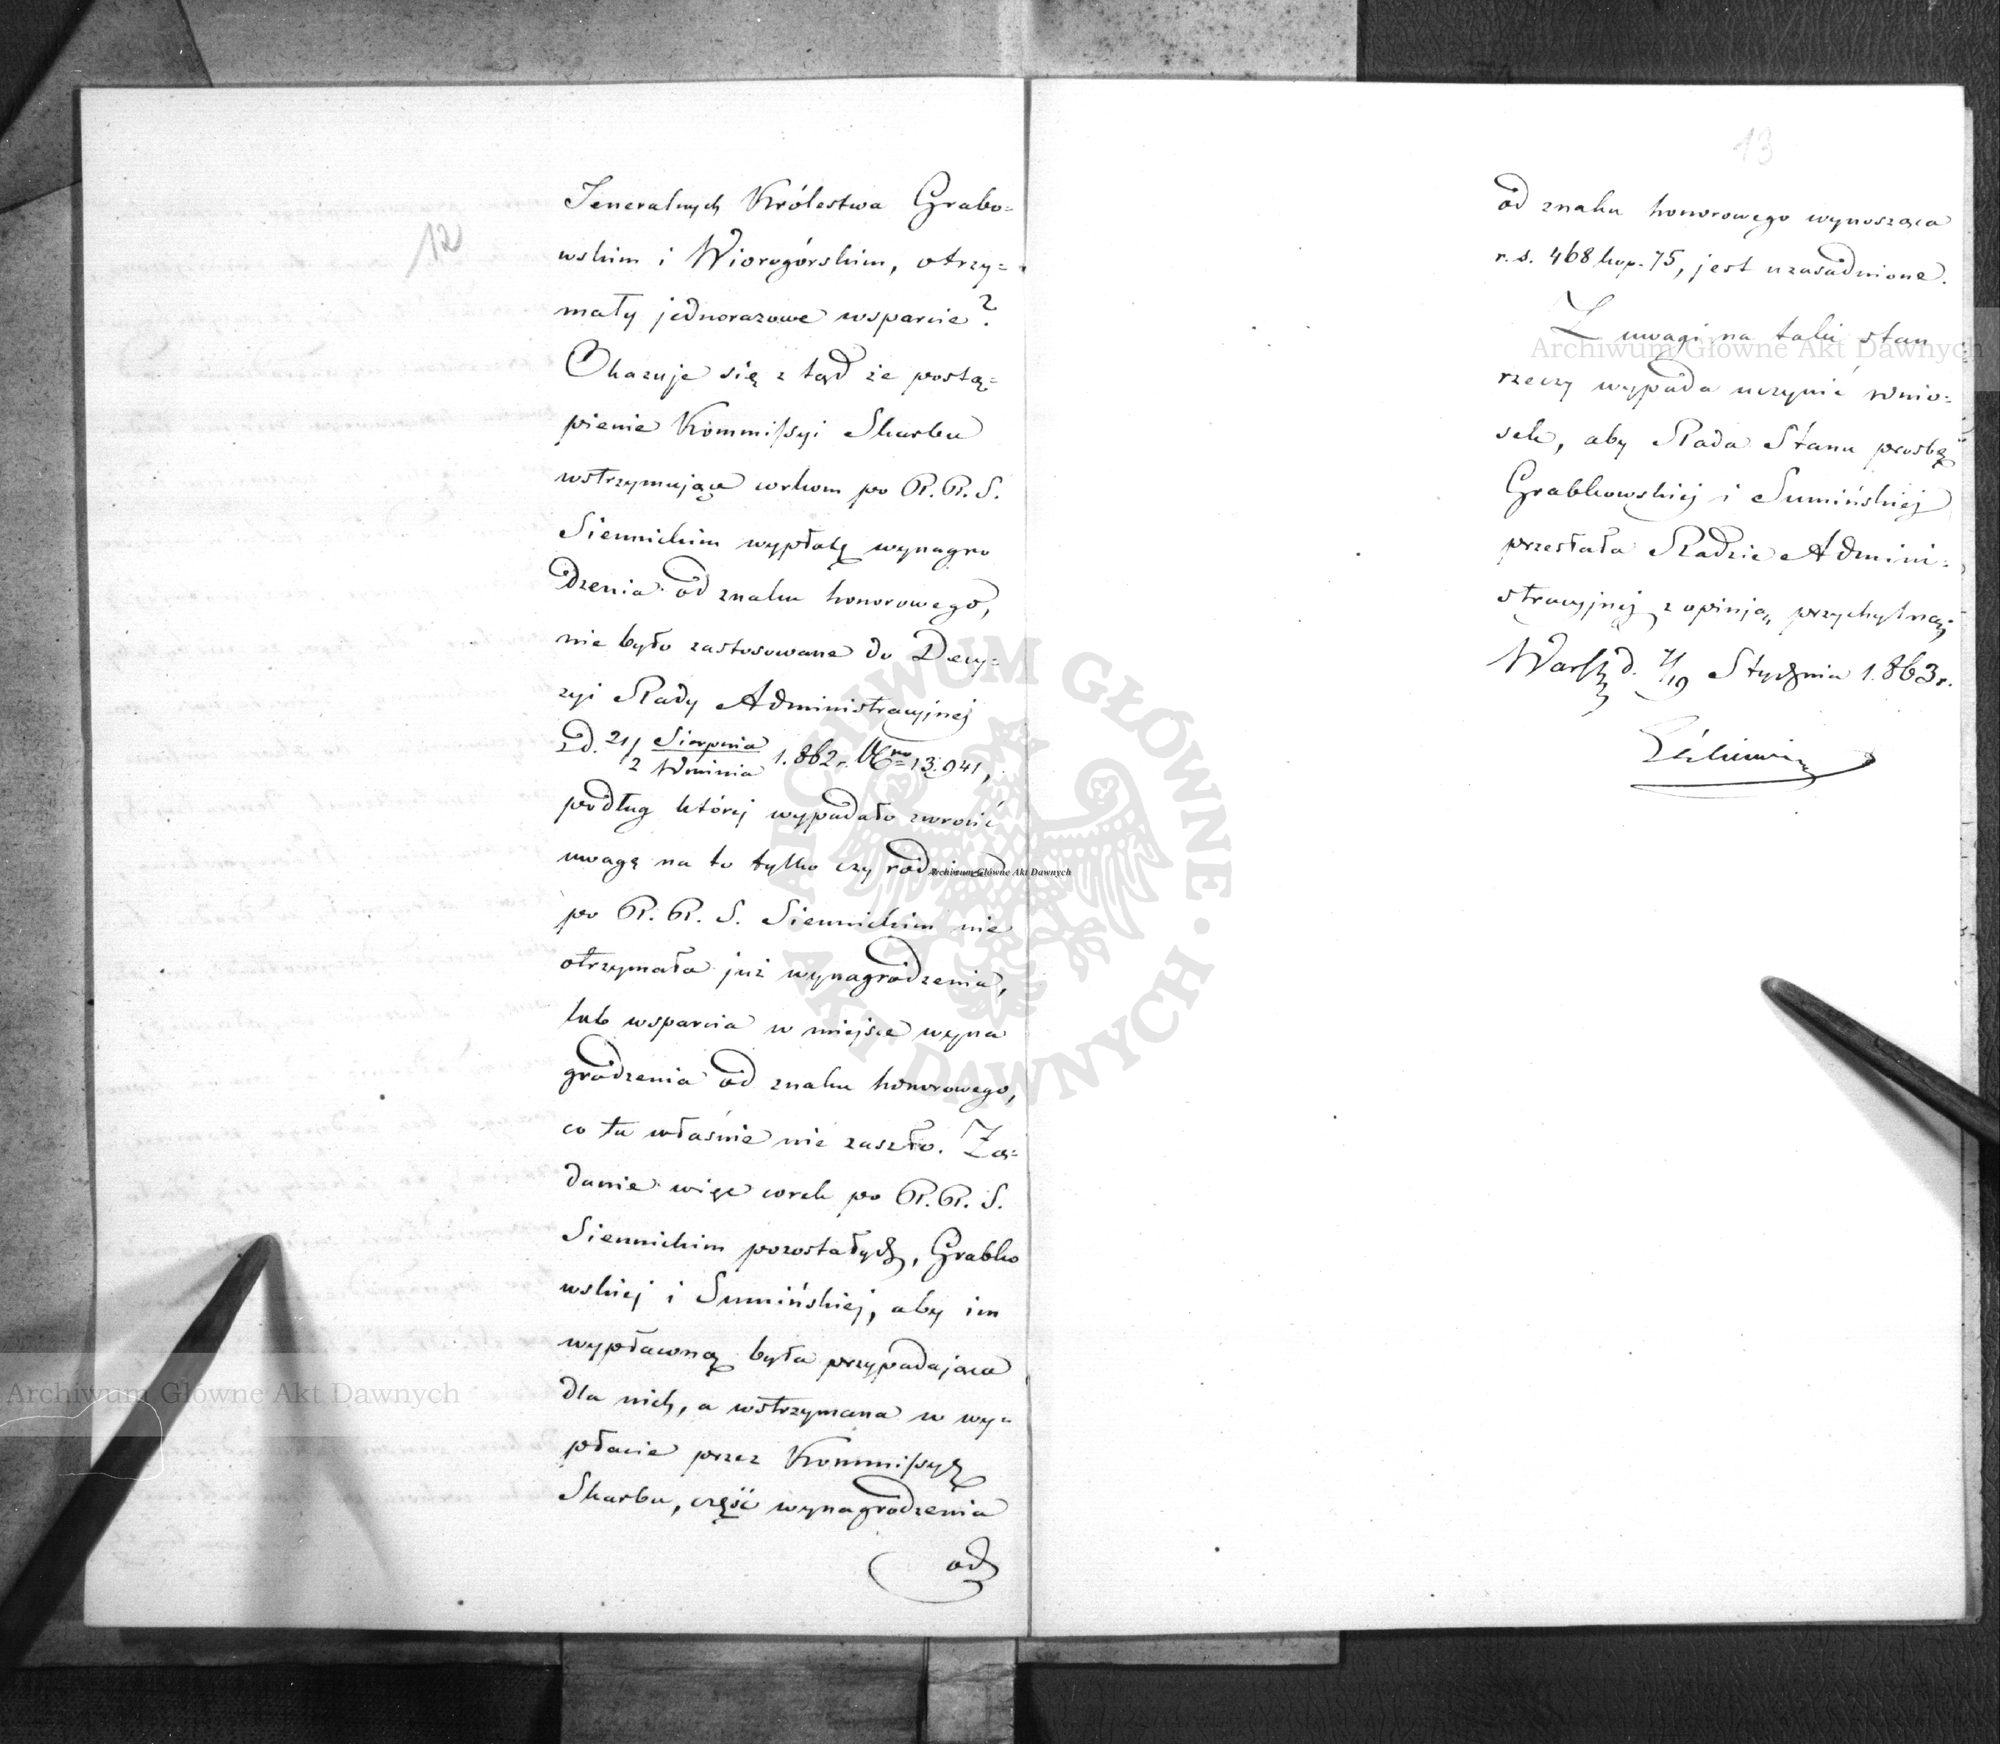 12
Jeneralnych Królestwa Grabo=
wskim i Wiorogórskim, otrzy=
mały jednorazowe wsparcie?
Okazuje się z tąd że postą=
pienie Kommissyi Skarbu
wstrzymujące córkom po R. R. S.
Siennickim wypłatę wynagro
dzenia od znaku honorowego,
nie było zastosowane do Decy=
zyi Rady Administracyjnej
z d. 21/2 Sierpnia/Września 1.862 r. Nro 13.941,
podług której wypadało zwrócić
uwagę na to tylko czy rodzina
po R. R. S. Siennickim nie
otrzymała już wynagrodzenia,
lub wsparcia w miejsce wyna
grodzenia od znaku honorowego,
co tu właśnie nie zaszło. Żą=
danie więc córek po R. R. S.
Siennickim pozostałych, Grabko
wskiej i Sumińskiej, aby im
wypłaconą była przypadająca
dla nich, a wstrzymana w wy=
płacie przez Kommissyę
Skarbu, część wynagrodzenia
od
13
od znaku honorowego wynosząca
r. s. 468 kop. 75, jest uzasadnione.
Z uwagi na taki stan
rzeczy wypada uczynić wnio=
sek, aby Rada Stanu prośbę
Grabkowskiej i Sumińskiej
przesłała Radzie Admini=
stracyjnej z opinją przychylną.
Warsz d. 7/19 Stycznia 1.863 r.
Archiwum Główne Akt Dawnych
Archiwum Główne Akt Dawnych
Archiwum Główne Akt Dawnych
ARCHIWUM GŁÓWNE • AKT DAWNYCH •